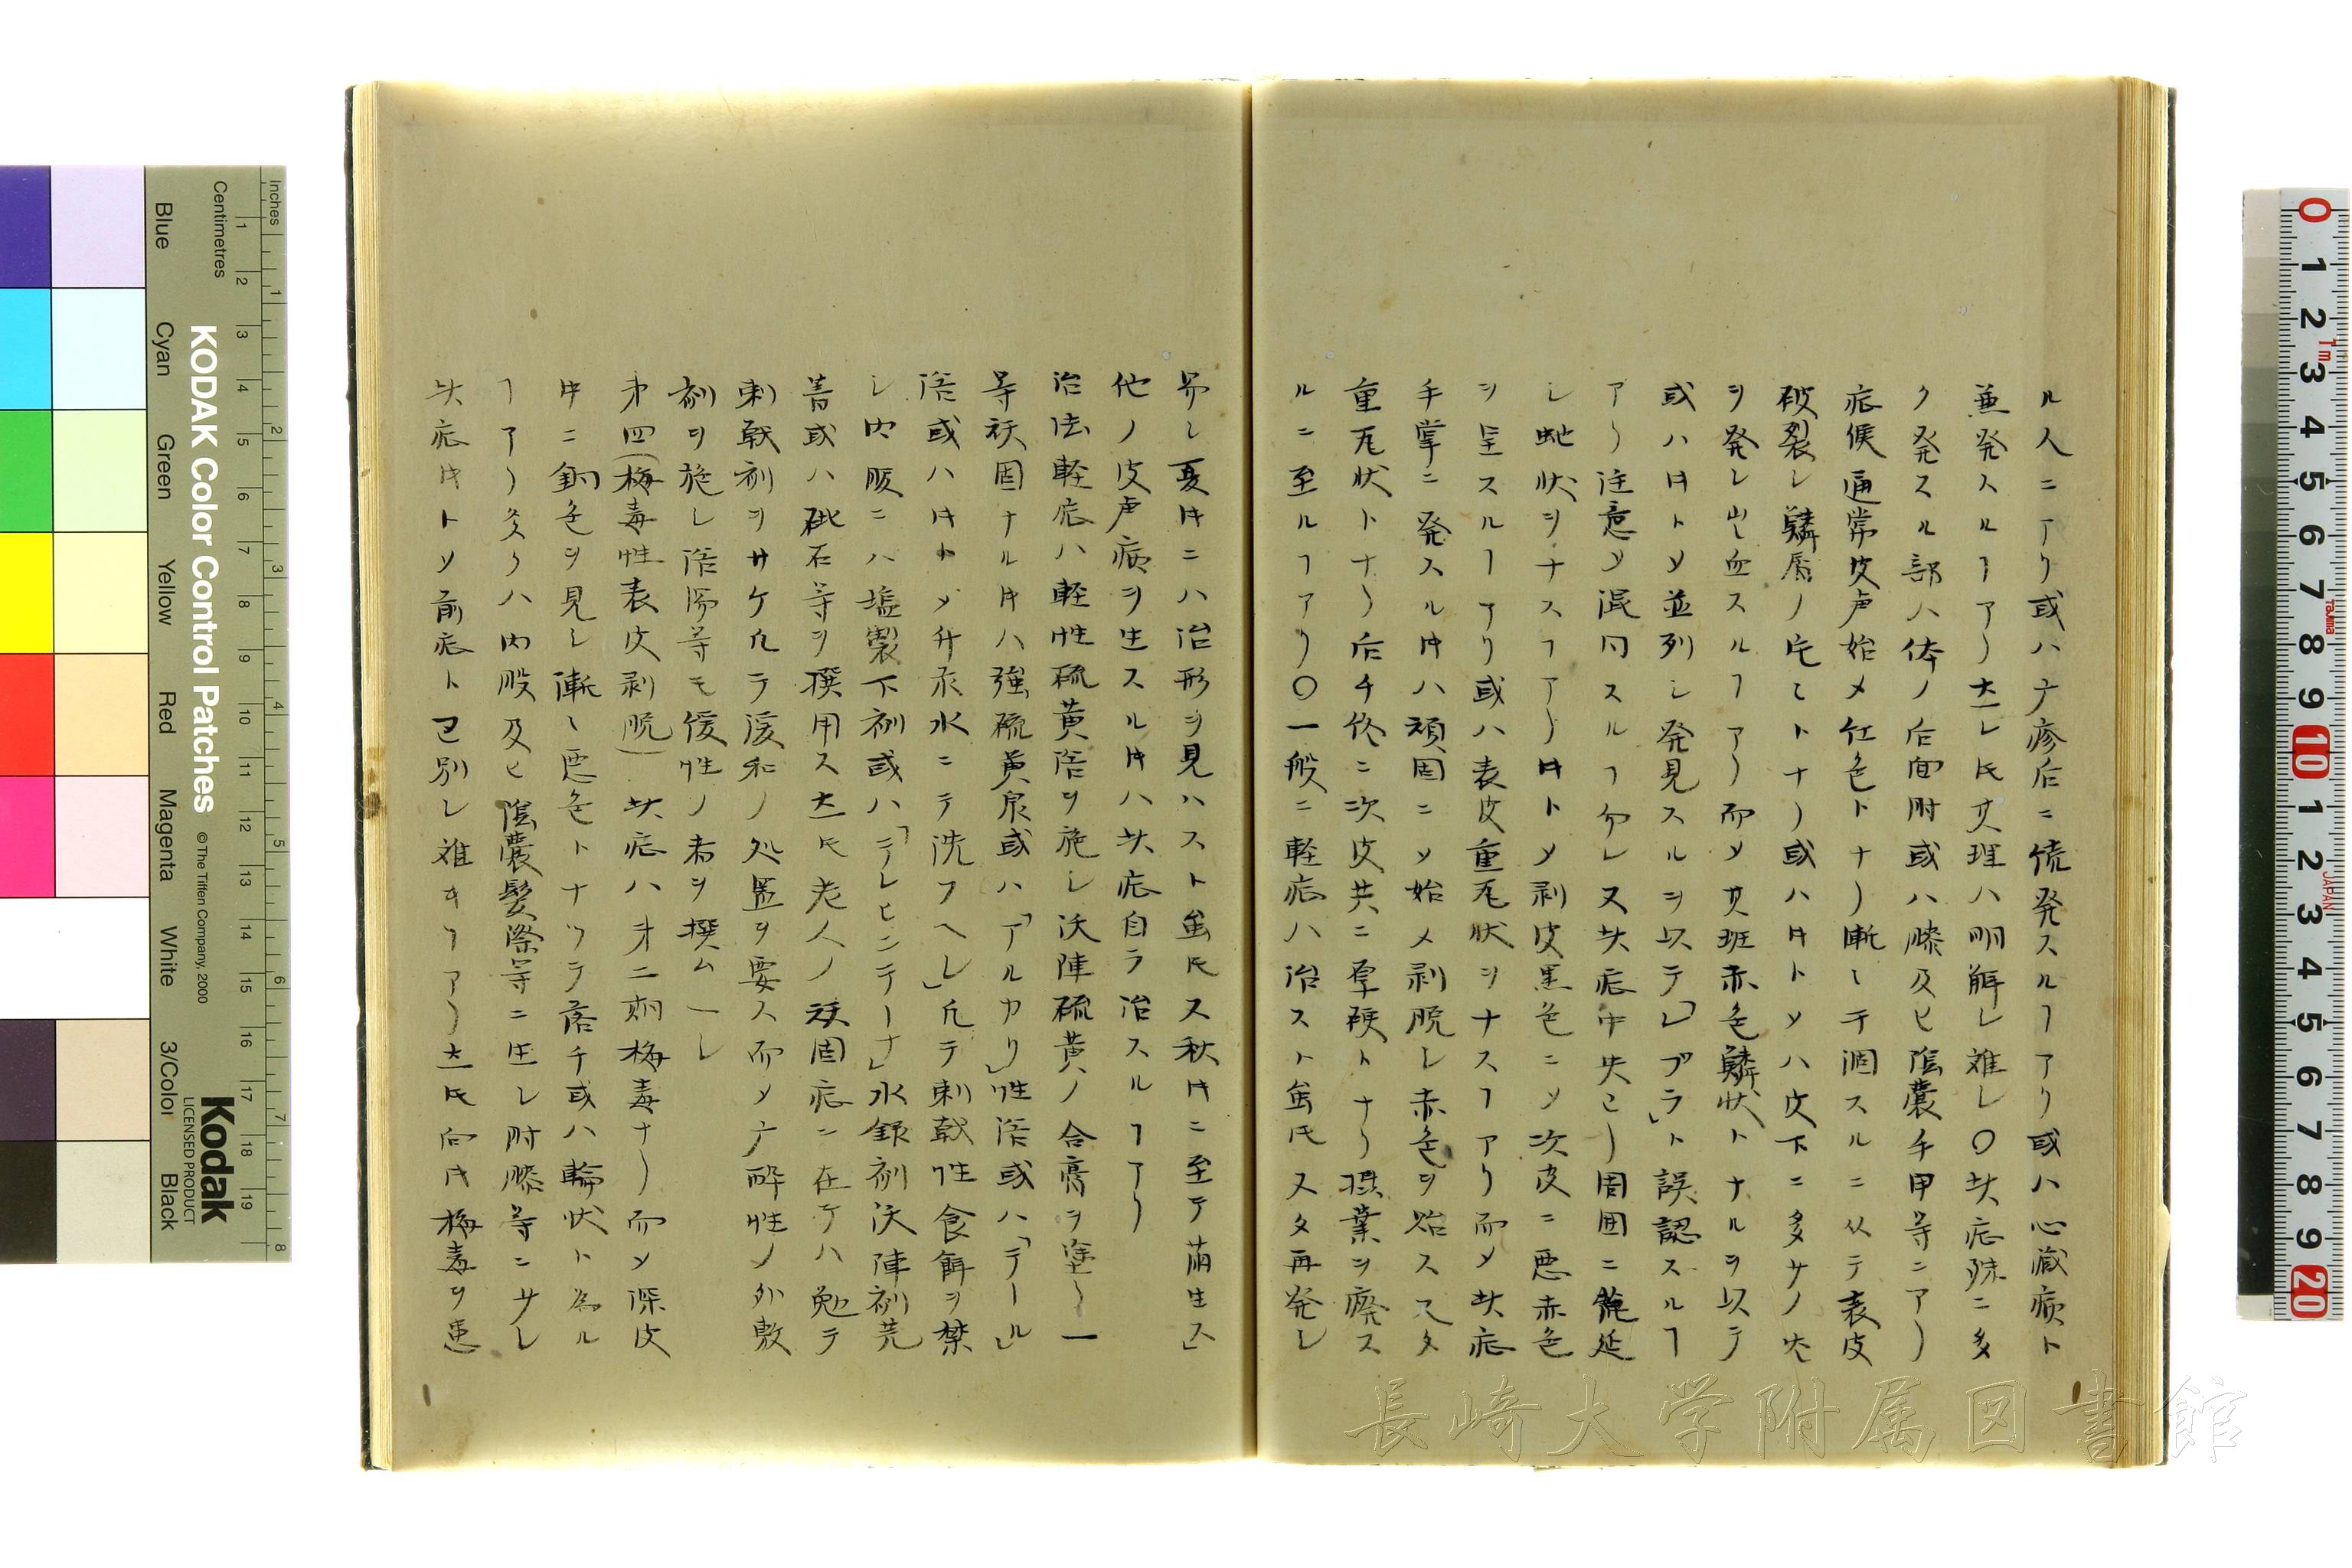 ル人ニアリ或ハ疒疹后ニ続発スルヿアリ或ハ心臓病ト
兼発スルヿアリ 𪜈其理ハ明解し難し〇此症殊ニ多
ク発スル部ハ体ノ后面肘或ハ膝及ヒ陰嚢手甲等ニアリ
症候通常皮声始メ紅色トナリ漸々干涸スルニ从テ表皮
破裂し鱗屑ノ片々トナリ或ハ時トメハ皮下ニ多少ノ
ヲ発し出血スルヿアリ而メ其班赤色鱗状トナルヲ以テ
或ハ時トメ並列し発見スルヲ以テ「レブラ」ト誤認スルヿ
アリ注意メ混同スルヿ勿レ又此症中央ヨリ周囲ニ蔓延
し蛇状ヲナスヿアリ時トメ剥皮黒色ニメ次皮ニ悪赤色
ヲ呈スルヿアリ或ハ表皮重瓦状ヲナスヿアリ而メ此症
手掌ニ発スル時ハ頑固ニメ始メ剥脱し赤色ヲ貽ス又タ
重瓦状トナリ后チ終ニ次皮共ニ厚硬トナリ操業ヲ癈ス
ルニ至ルヿアリ〇一般ニ軽症ハ治スト虽𪜈又タ再発し
し夏時ニハ治形ヲ見ハスト虽𪜈又秋時ニ至テ萠生ス」
他ノ皮声病ヲ生スル時ハ此症自ラ治スルヿアリ
治法軽症ハ軽性硫黄浴ヲ施し沃陣硫黄ノ合膏ヲ塗ー
等頑固ナル時ハ強硫黄泉或ハ「アルカリ」性浴或ハ「テール」
浴或ハ時トメ升汞水ニテ洗フヘし」凡テ刺戟性食餌ヲ禁
し内服ニハ塩製下剤或ハ「テレヒンテーナ」水銀剤沃陣剤芫
菁或ハ砒石等ヲ撰用ス 𪜈老人ノ頑固症ニ在テハ勉テ
刺戟剤ヲサケ凡テ緩和ノ処置ヲ要ス而メ疒酔性ノ外敷
剤ヲ施し浴湯等モ緩性ノ者ヲ撰ムーし
第四(梅毒性表皮剥脱)此症ハ第二期梅毒ナリ而メ深皮
中ニ銅色ヲ見し漸々悪色トナツテ落チ或ハ輪状ト為ル
ヿアリ多クハ内股及ヒ陰嚢髪際等ニ生し肘膝等ニサし
此症時トメ前症ト区別し難キヿアリ 𪜈向時梅毒ヲ患